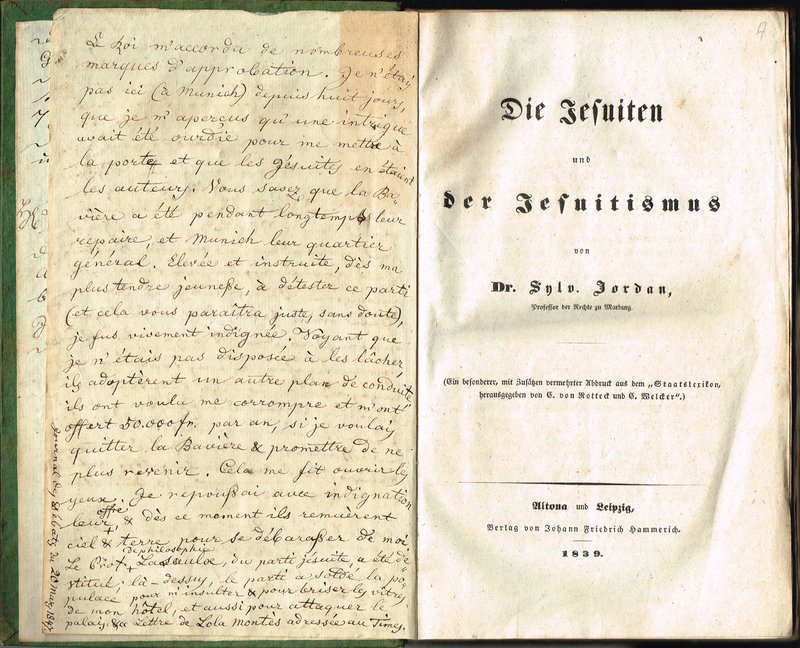 Le Roi m'accorda de nombreuses
marques d'approbation. Je n'étais
pas ici (à Munich) depuis huit jours,
que je m'aperçus qu'une intrigue
avait été ourdie pour me mettre à
la porte et que les Jésuites en étaient
les auteurs. Vous savez que la Ba-
vière a été pendant longtemps Le leur
repaire, et Munich leur quartier
général. Elevée et instruite, dès ma
plus tendre jeuneße, à détester ce parti
(et cela vous paraîtra juste, sans doute),
je fus vivement indignée. Voyant que
je n'étais pas disposée à les lâcher,
ils adoptèrent un autre plan de conduite
ils ont voulu me corrompre et m'ont
offert 50.000 fr. par an, si je voulais
quitter la Bavière & promettre de ne
plus revenir. Cela me fit ouvrir les
yeux. Je repoußai avec indignation
leur offre & dès ce moment ils remuèrent
ciel & terre pour se débaraßer de moi.
Le Prof. de philosophie Lasaulx, du parti jésuite a été de-
stitué: là-dessus, le parti a soldé la po-
pulace pour m'insulter & pour briser les vitres
de mon hôtel, et aussi pour attaquer le
palais. La Lettre de Lola Montès adressée au Times.
Journal des Débats du 20 Mars 1847
A
Die Jesuiten
und
der Jesuitismus
von
Dr. Sylv. Jordan,
Professor der Rechte zu Marburg.
(Ein besonderer, mit Zusätzen vermehrter Abdruck aus dem „Staatslexikon,
herausgegeben von C. von Rotteck und C. Welcker".)
Altona und Leipzig,
Verlag von Johann Friedrich Hammerich.
1839.